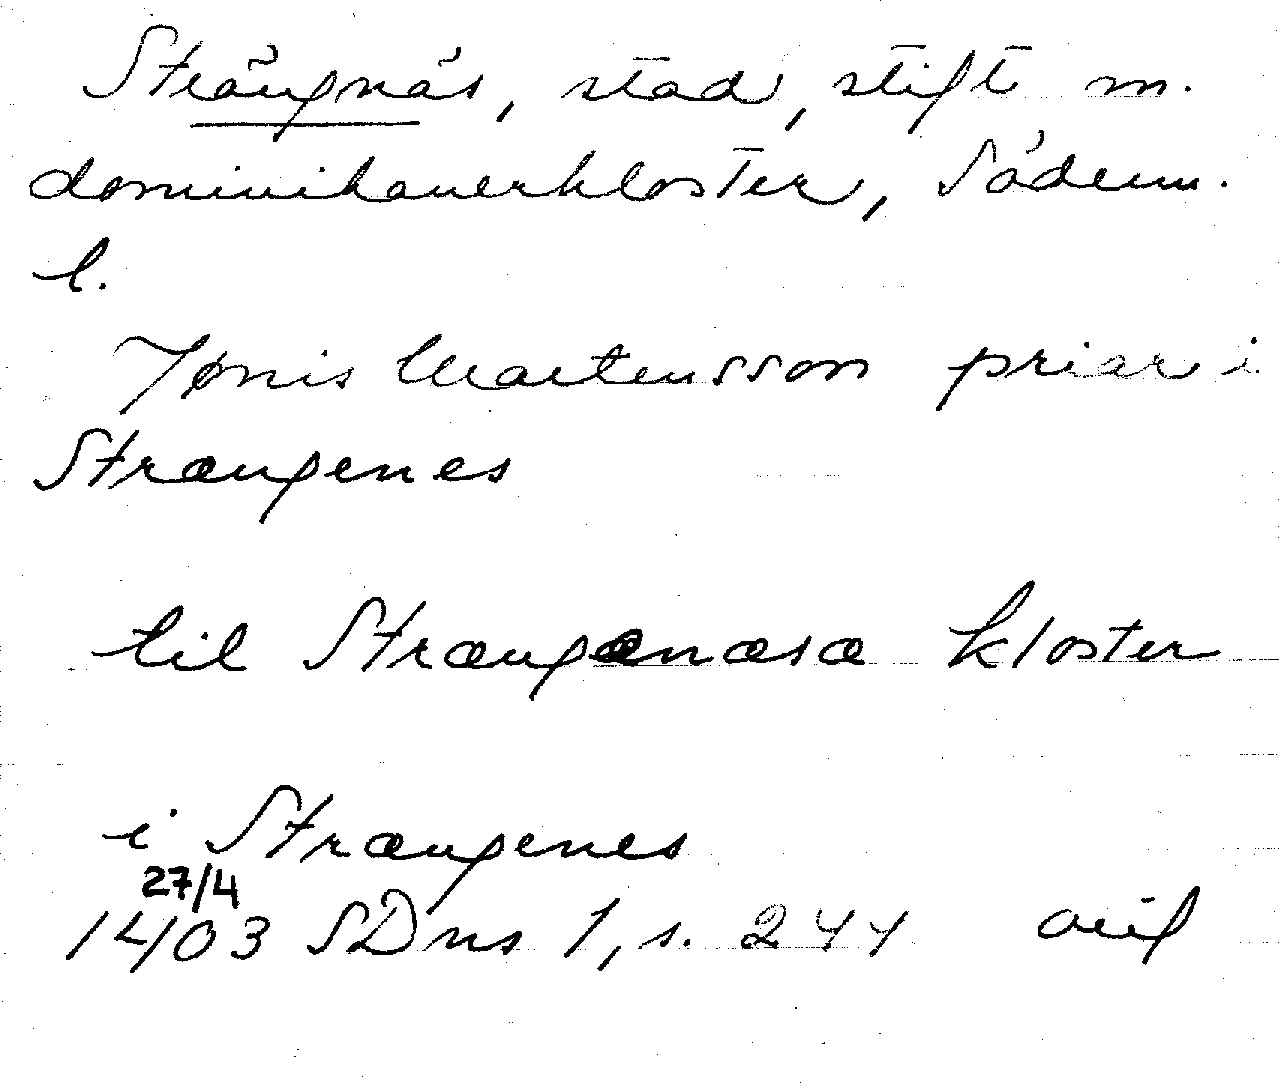 Strängnäs, stad, stift m.
dominikanerkloster, Söderm.
l.
Jønis Martensson priar i
Strængenes
til Strængenæsæ kloster
i Strængenes
27/4
1403 SDns 1, s. 244 orig